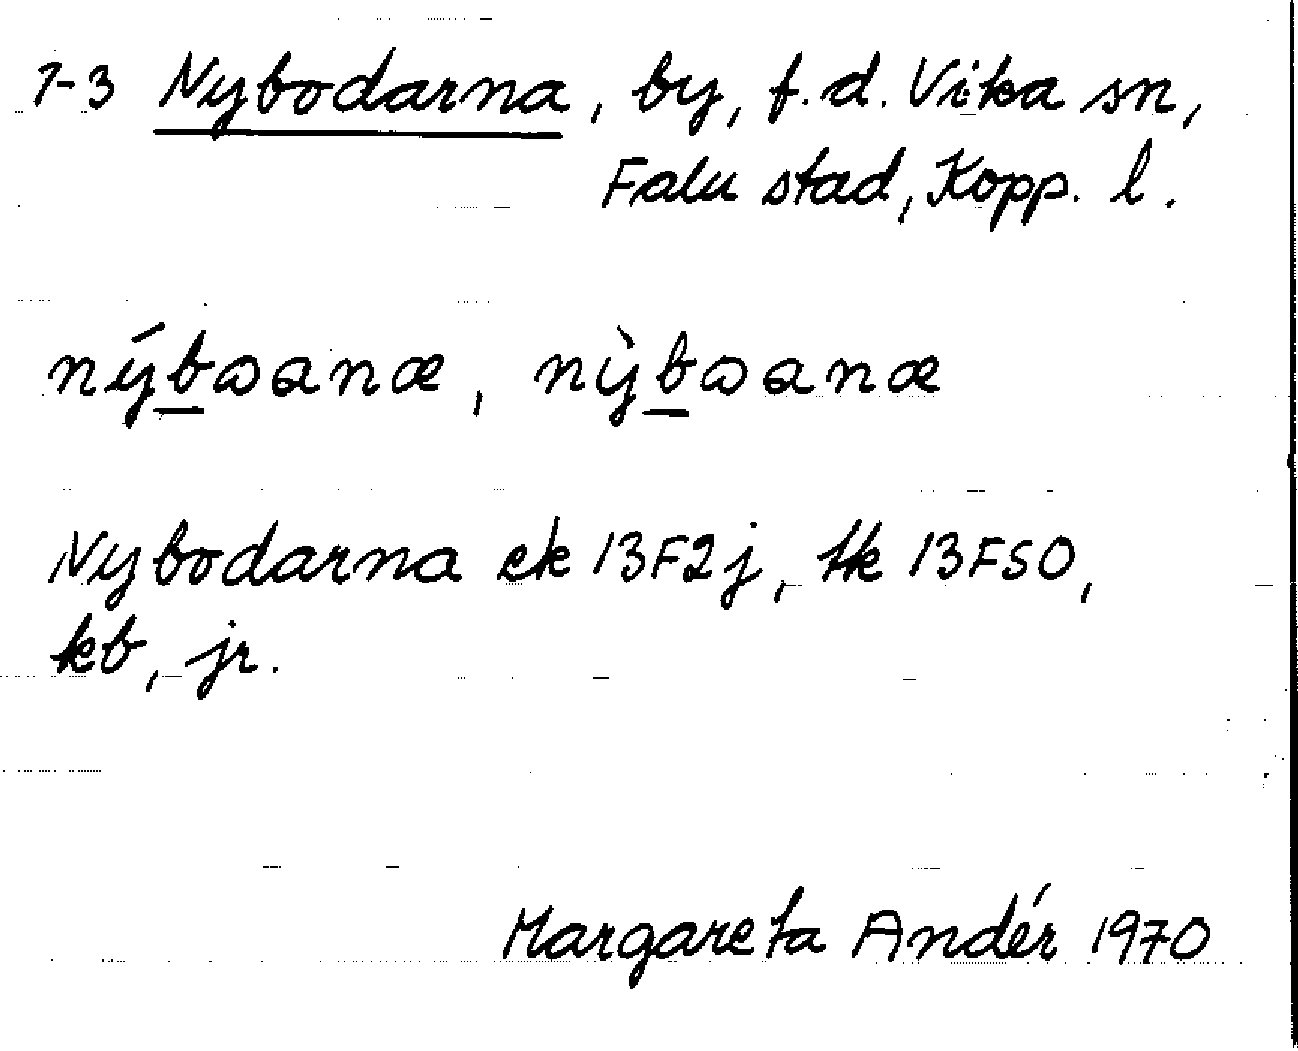 1-3 Nybodarna, by, f.d. Vika sn,
Falu stad, Kopp. l.
nýbωanæ, nỳbωanæ
Nybodarna ek 13F2j, tk 13FSO,
kb, jr.
Margareta Andér 1970